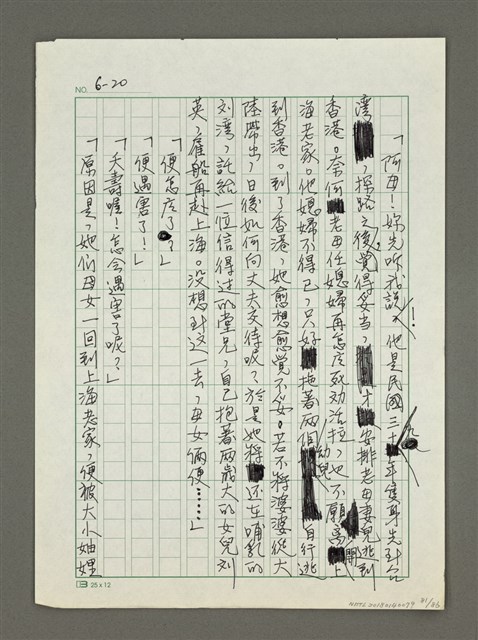 NO. 6-20
「阿母!妳先听我說!他是民國三十九年隻身先到台
灣,探路之後,覺得妥当,才安排老母妻兒逃到
香港。奈何老母任媳婦再怎应死劝活拉,也不願离開上
海老家。他媳婦不得已,只好抱著兩個幼兒自行逃
到香港。到了香港,她愈想愈覺不妥。若不將婆婆從大
陸帶出,日後如何向丈夫交待呢?於是她將还在哺乳的
刘湾,託給一位信得过的堂兄,自己抱著兩歲大的女兒刘
英,雇船再赴上海。没想到这一去,母女倆便……」
「便怎应了?」
「便遇害了!」
「夭壽喔!怎会遇害了呢?」
「原因是,她們母女一回到上海老家,便被大小妯娌
25 x 12
41/46